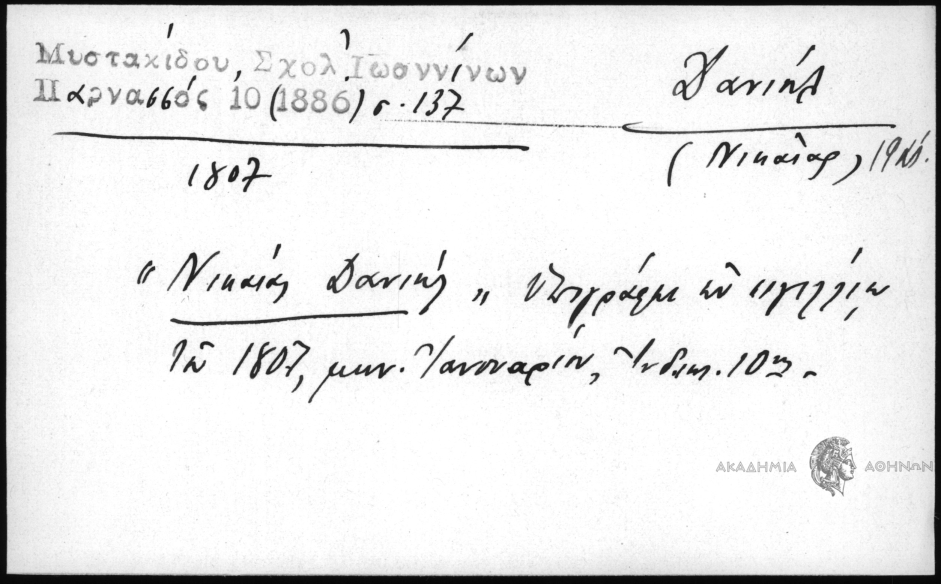 Μυστακίδου, Σχολ. Ἰωαννίνων
Παρνασσός 10 (1886) σ. 137
Δανιήλ
(Νικαίας) 19 αἰ.
1807
"Νικαίας Δανιήλ" ὑπογράφει
τῷ 1807, μην. Ἰανουαρίου, Ἰνδικτ. 10ης.
ΑΚΑΔΗΜΙΑ ΑΘΗΝΩΝ